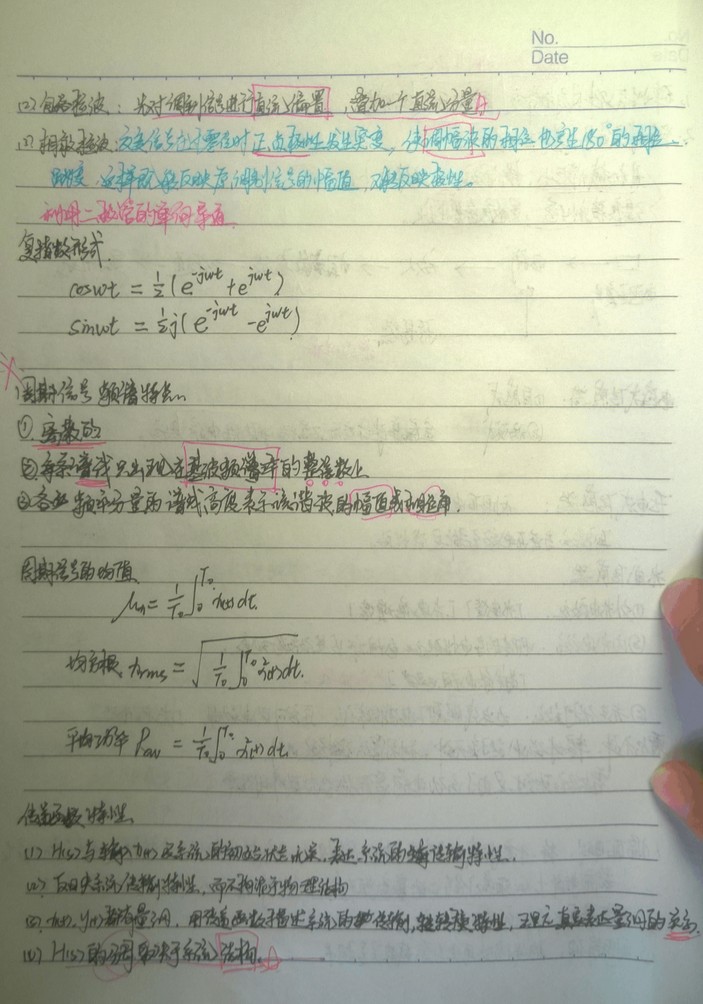 No.
Date
(2) 包络检波：先对调制信号进行直流偏置，叠加一个直流分量A
(3) 相敏检波 交变信号在过零位时正负极性发生突变，使调幅波的相位也产生180°的相位
跳变，这样既能反映原调制信号的幅值，又能反映极性。
利用二极管的单向导通
复指数形式.
coswt = 1/2 (e^-jwt + e^jwt)
sinwt = 1/2 j (e^-jwt - e^jwt)
周期信号频谱特点:
① 离散的
② 每条谱线只出现在基波频率的整倍数上
③ 各频率分量的谱线高度表示该谐波的幅值或相位角.
周期信号的均值
μx = 1/T₀ ∫₀^T₀ x(t)dt.
均方根 xrms = √(1/T₀ ∫₀^T₀ x²(t)dt.
平均功率 Pav = 1/T₀ ∫₀^T₀ x²(t)dt.
传递函数特性
(1) H(s)与输入x(t)及系统的初始状态无关，表达系统的传输特性.
(2) 反映系统传输特性，而不拘泥于物理结构
(3) x(t), y(t)都有量纲，用传递函数描述系统的传输，转换特性，真实表达量纲的变换.
(4) H(s)的分母取决于系统结构.